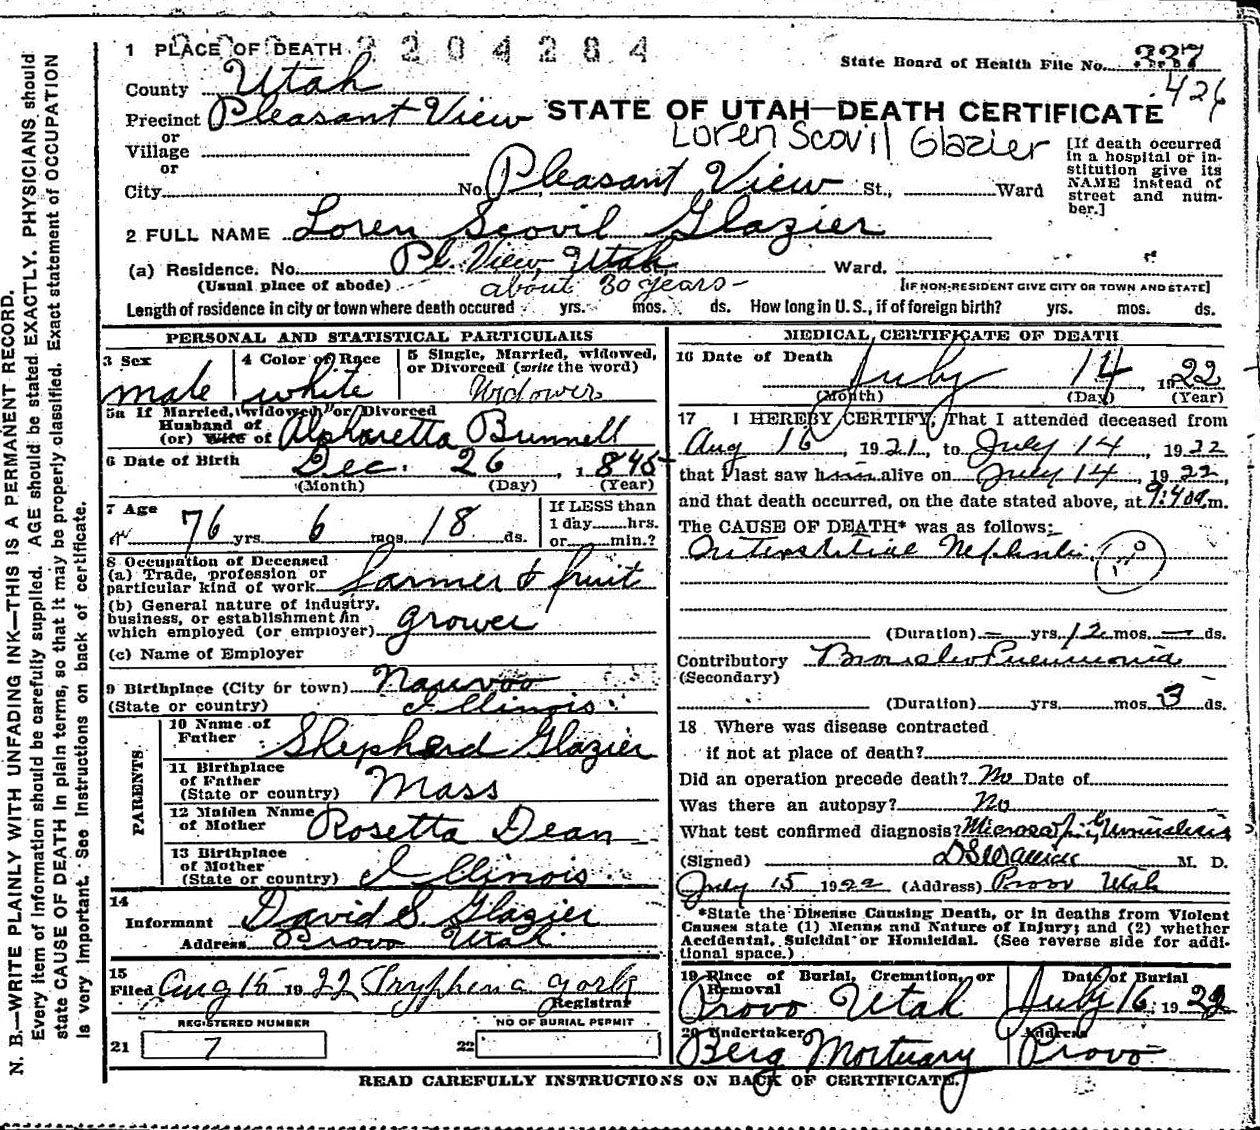 N. B.—WRITE PLAINLY WITH UNFADING INK—THIS IS A PERMANENT RECORD.
Every item of information should be carefully supplied. AGE should be stated EXACTLY. PHYSICIANS should
state CAUSE OF DEATH in plain terms, so that it may be properly classified. Exact statement of OCCUPATION
is very important. See instructions on back of certificate.
1 PLACE OF DEATH 2204284
State Board of Health File No. 337
426
County Utah
Precinct Pleasant View
STATE OF UTAH—DEATH CERTIFICATE
or
Village
Loren Scovil Glazier
or
City No. Pleasant View St., Ward
[If death occurred
in a hospital or in-
stitution give its
NAME instead of
street and num-
ber.]
2 FULL NAME Loren Scovil Glazier
(a) Residence. No. Pl. View, Utah Ward.
(Usual place of abode) about 30 years-
[IF NON-RESIDENT GIVE CITY OR TOWN AND STATE]
Length of residence in city or town where death occured yrs. mos. ds. How long in U.S., if of foreign birth? yrs. mos. ds.
PERSONAL AND STATISTICAL PARTICULARS
3 Sex
male
4 Color or Race
white
5 Single, Married, widowed,
or Divorced (write the word)
Widower
5a If Married, widowed or Divorced
Husband of
(or) Wife of Alpharetta Bunnell
6 Date of Birth Dec. 26 1845
(Month) (Day) (Year)
7 Age
76 yrs. 6 mos. 18 ds.
If LESS than
1 day hrs.
or min.?
8 Occupation of Deceased
(a) Trade, profession or
particular kind of work farmer & fruit
(b) General nature of industry,
business, or establishment in
which employed (or employer) grower
(c) Name of Employer
9 Birthplace (City or town) Nauvoo
(State or country) Illinois
PARENTS
10 Name of
Father Shepherd Glazier
11 Birthplace
of Father
(State or country) Mass
12 Maiden Name
of Mother Rosetta Dean
13 Birthplace
of Mother
(State or country) Illinois
14
Informant David S. Glazier
Address Provo Utah
15
Filed Aug 15 1922 Tryphena York
Registrar
REGISTERED NUMBER
21 7
NO OF BURIAL PERMIT
22
MEDICAL CERTIFICATE OF DEATH
16 Date of Death
July 14, 1922
(Month) (Day) (Year)
17 I HEREBY CERTIFY, That I attended deceased from
Aug 16, 1921, to July 14, 1922
that I last saw him alive on July 14, 1922,
and that death occurred, on the date stated above, at 9:40a m.
The CAUSE OF DEATH* was as follows:
Interstitial Nephritis
(Duration) — yrs. 12 mos. — ds.
Contributory Broncho Pneumonia
(Secondary)
(Duration) yrs. mos. 3 ds.
18 Where was disease contracted
if not at place of death?
Did an operation precede death? No Date of
Was there an autopsy? No
What test confirmed diagnosis? Microscopic Urinalysis
(Signed) M. D.
July 15 1922 (Address) Provo Utah
*State the Disease Causing Death, or in deaths from Violent
Causes state (1) Means and Nature of Injury; and (2) whether
Accidental, Suicidal or Homicidal. (See reverse side for addi-
tional space.)
19 Place of Burial, Cremation, or
Removal
Provo Utah
Date of Burial
July 16, 1922
20 Undertaker
Berg Mortuary
Address
Provo
READ CAREFULLY INSTRUCTIONS ON BACK OF CERTIFICATE.